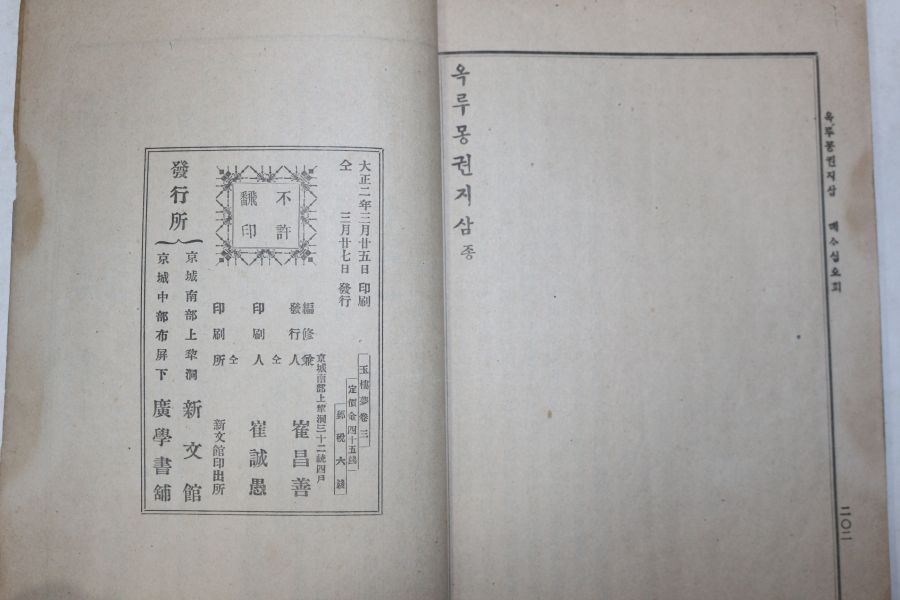 옥루몽권지삼 뎨소십오회
二〇二
옥루몽권지삼 종
大正二年三月廿五日 印刷
仝 三月廿七日 發行
玉樓夢卷三
定價金四十五錢
郵稅六錢
不許
飜印
京城南部上犂洞三十二統四戶
編修兼
發行人 崔昌善
仝
印刷人 崔誠愚
仝
印刷所 新文館印出所
發行所
京城南部上犂洞 新文館
京城中部布屏下 廣學書舖